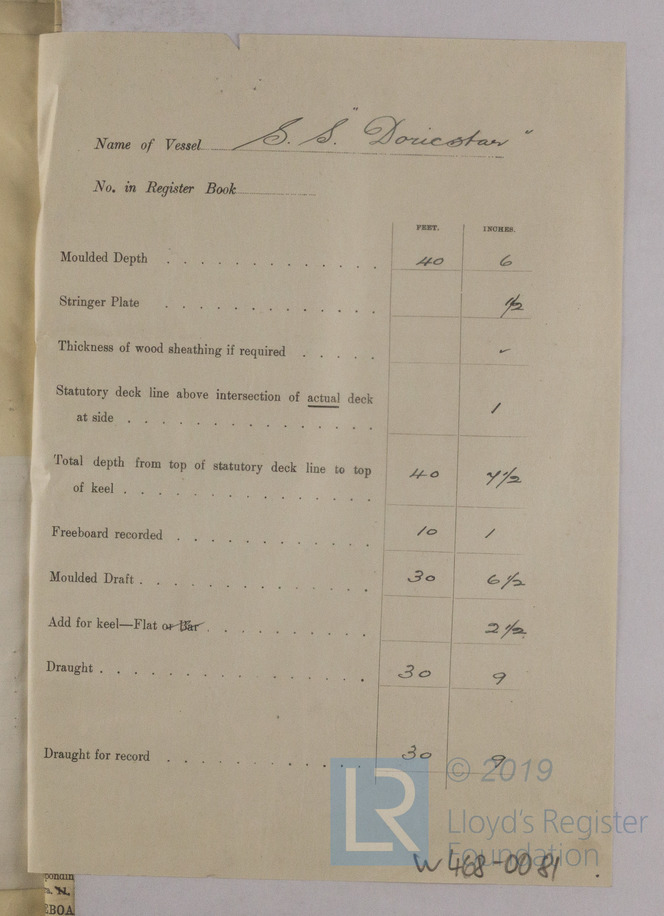 Name of Vessel S. S. "Doricstar"
No. in Register Book
FEET. INCHES.
Moulded Depth 40 6
Stringer Plate 1/2
Thickness of wood sheathing if required ✓
Statutory deck line above intersection of actual deck
at side 1
Total depth from top of statutory deck line to top
of keel 40 7 1/2
Freeboard recorded 10 1
Moulded Draft 30 6 1/2
Add for keel—Flat or Bar 2 1/2
Draught 30 9
Draught for record 30 9
LR
© 2019
Lloyd's Register
Foundation
W468-0081
EBOA